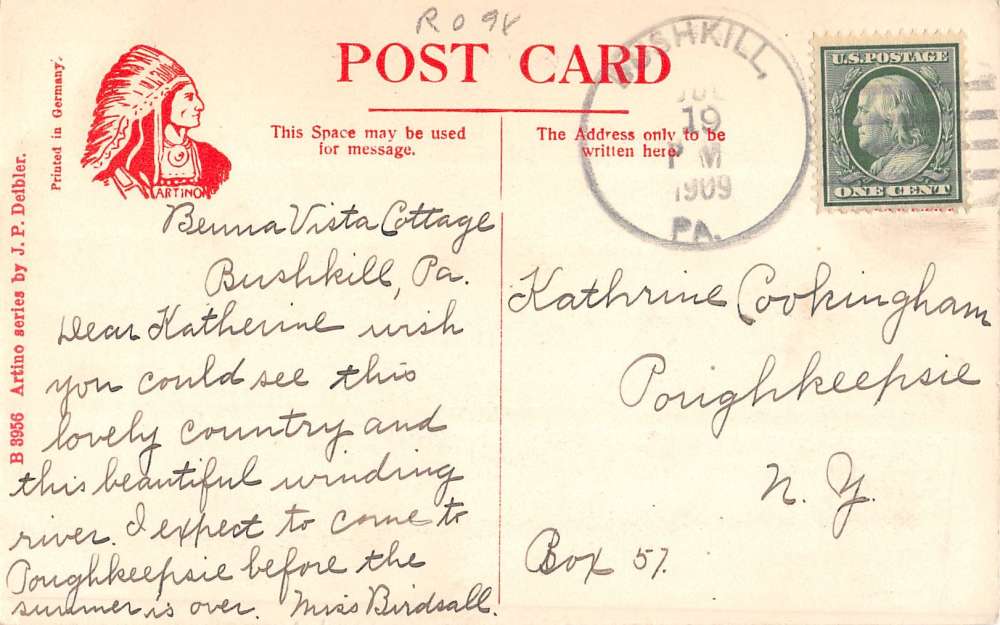 R O 9X
POST CARD
This Space may be used
for message.
The Address only to be
written here.
BUSHKILL,
JUL
19
P M
1909
PA.
U.S. POSTAGE
ONE CENT
Printed in Germany.
ARTINO
B 3956 Artino series by J. P. Deibler.
Benna Vista Cottage
Bushkill, Pa.
Dear Katherine wish
you could see this
lovely country and
this beautiful winding
river. I expect to come to
Poughkeepsie before the
summer is over. Miss Birdsall.
Kathrine Cookingham
Poughkeepsie
N. Y.
Box 57.